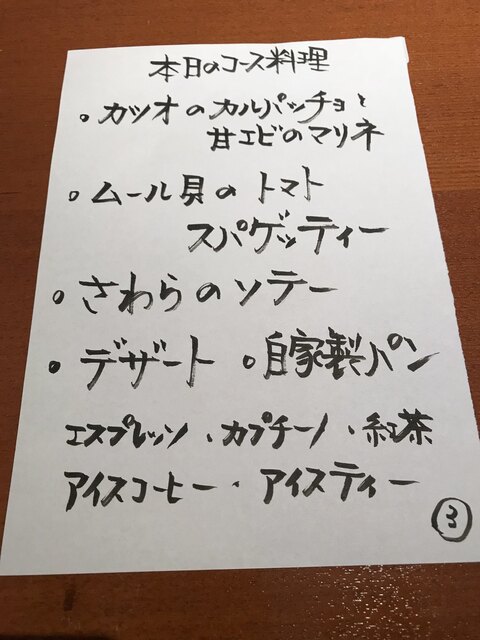 本日のコース料理
。カツオのカルパッチョと
甘エビのマリネ
。ムール貝のトマト
スパゲッティー
。さわらのソテー
。デザート 。自家製パン
エスプレッソ・カプチーノ・紅茶
アイスコーヒー・アイスティー
③